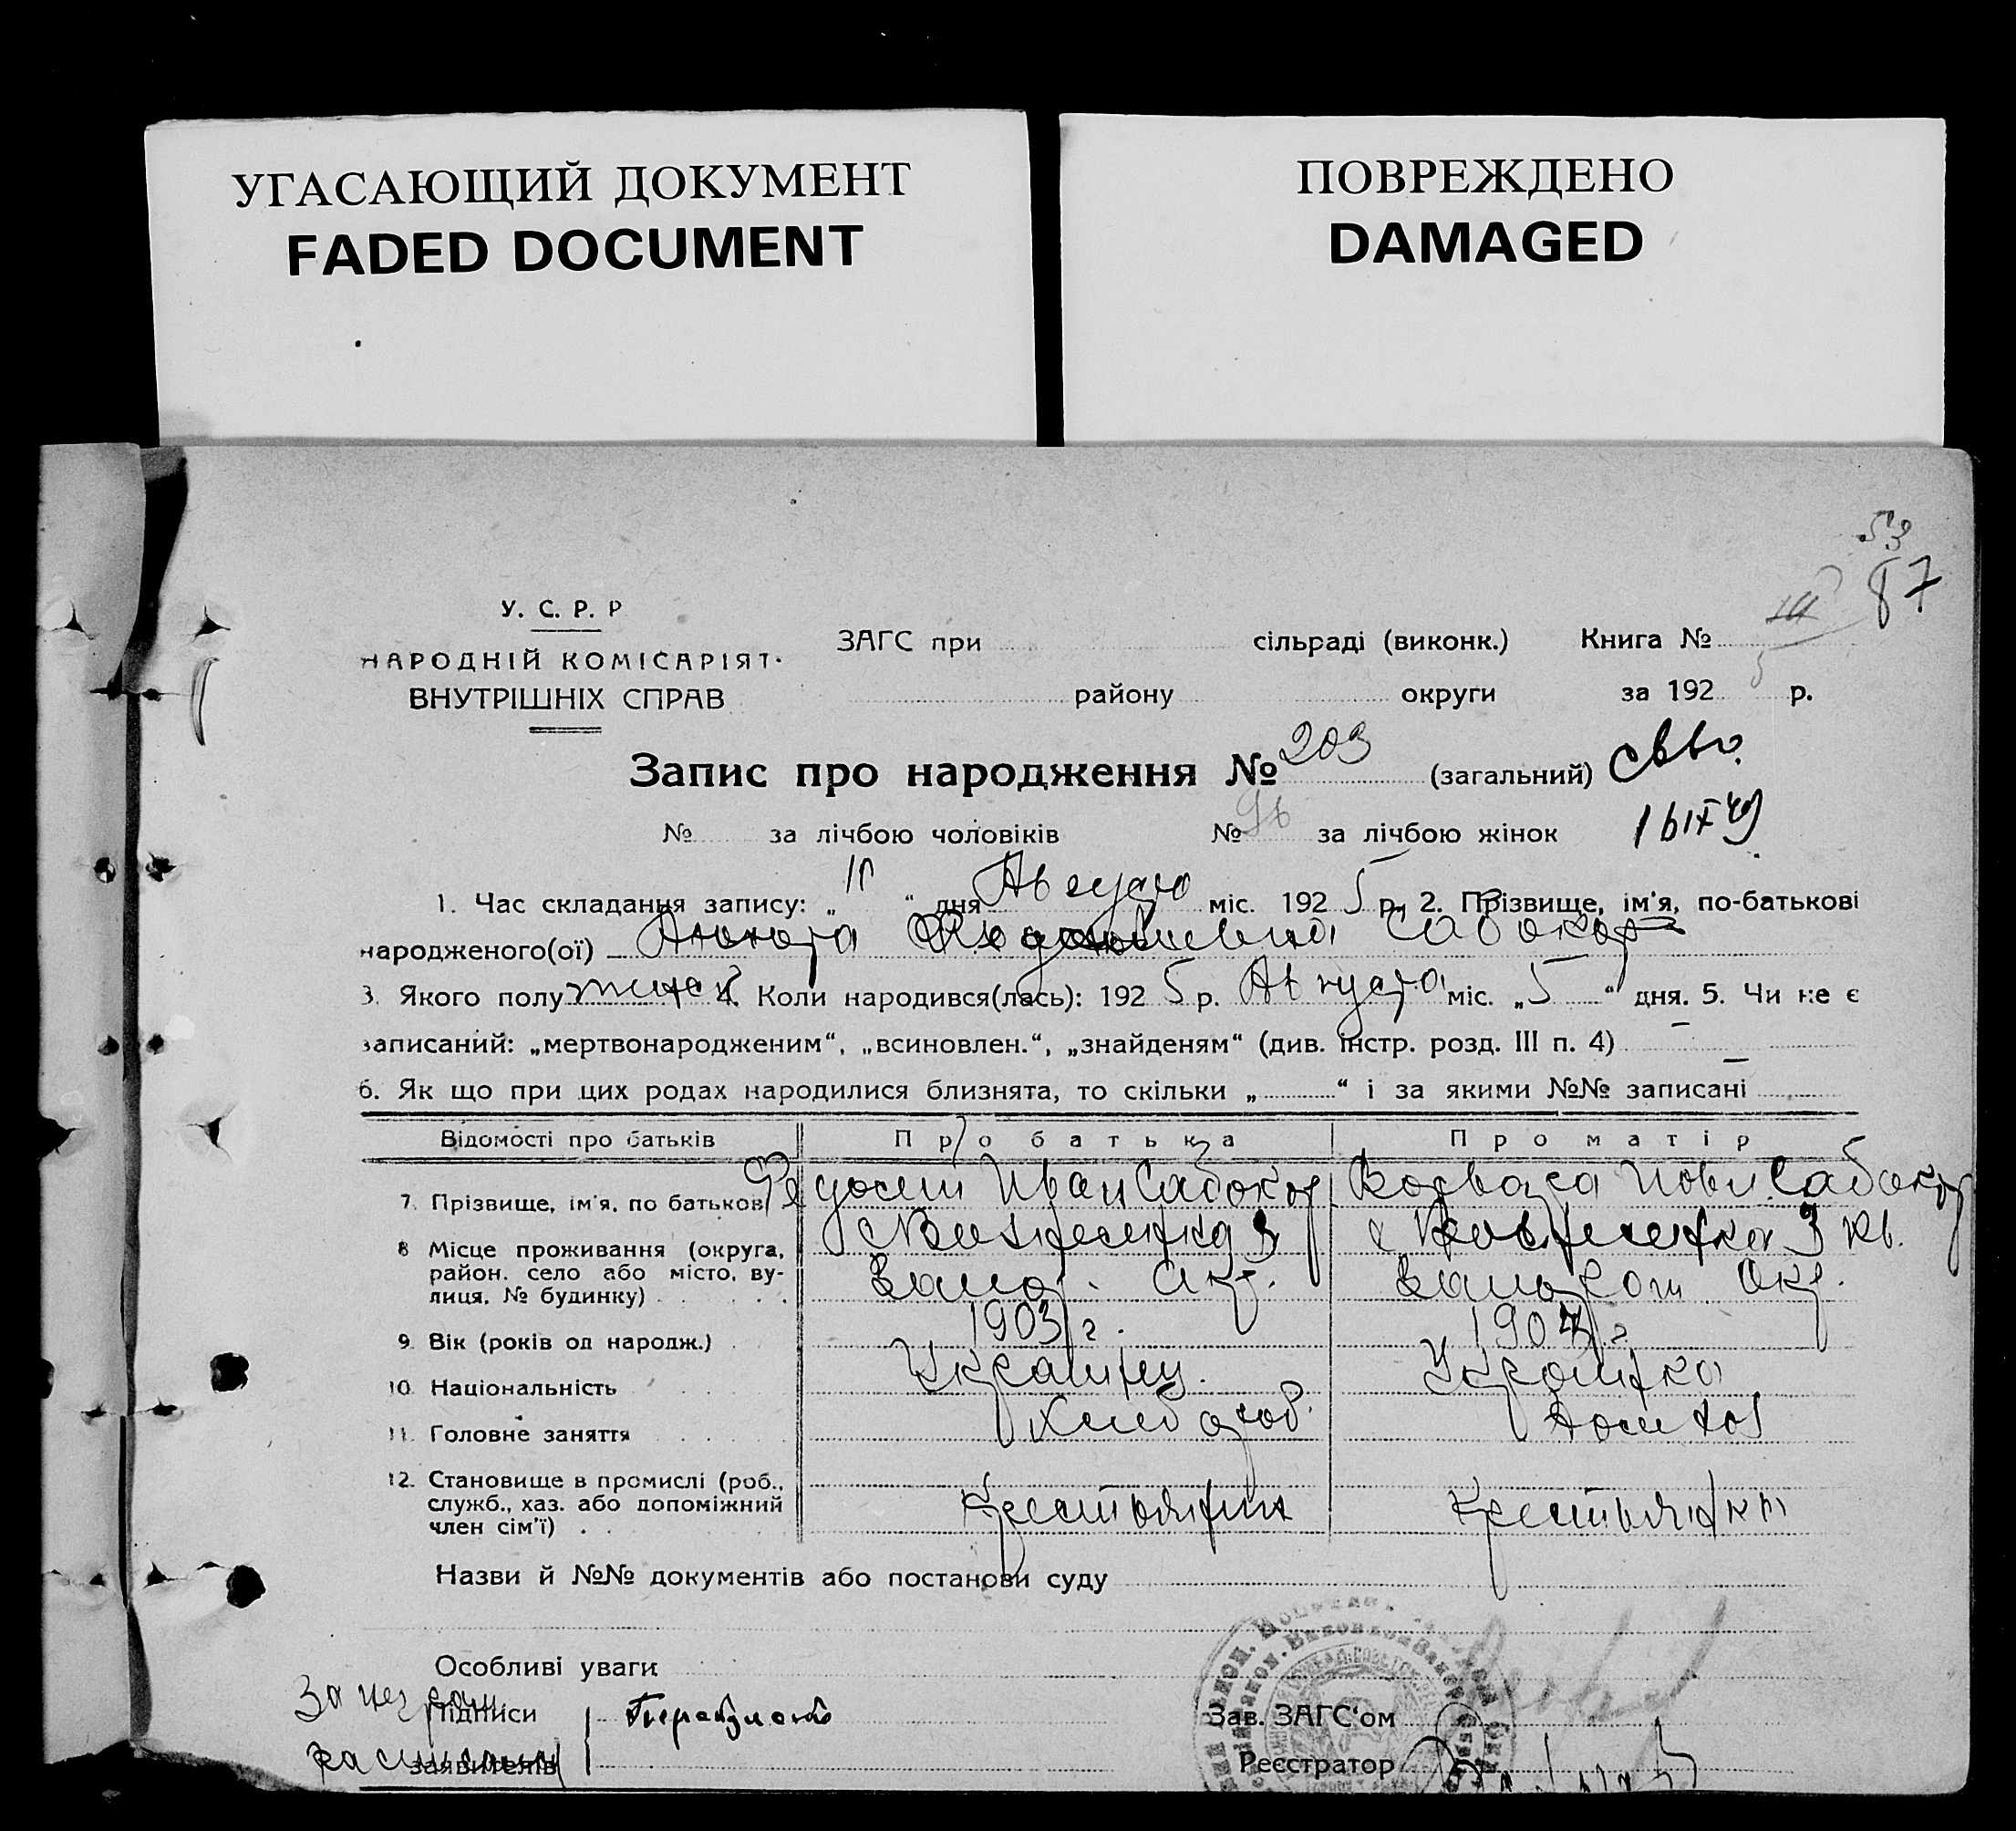 УГАСАЮЩИЙ ДОКУМЕНТ
FADED DOCUMENT
ПОВРЕЖДЕНО
DAMAGED
53
87
У. С. Р. Р
НАРОДНІЙ КОМІСАРІЯТ
ВНУТРІШНІХ СПРАВ
ЗАГС при сільраді (виконк.) Книга №
району округи за 192 5 р.
Запис про народження № 203 (загальний)
№ за лічбою чоловіків № за лічбою жінок
1. Час складання запису: „ “ дня Августа міс. 192 5 р. 2. Прізвище, ім'я, по-батькові
народженого(ої) Сабокар
3. Якого полу женск 4. Коли народився(лась): 192 5 р. Августа міс. „ 5 “ дня. 5. Чи не є
записаний: „мертвонародженим“, „всиновлен.“, „знайденям“ (див. інстр. розд. III п. 4) —
6. Як що при цих родах народилися близнята, то скільки „ “ і за якими №№ записані
Відомості про батьків Про батька Про матір
7. Прізвище, ім'я, по батькові Федосий Иван Сабокар Сабокар
8 Місце проживання (округа, район, село або місто, вулиця, № будинку) Вознесенка 3 Запор. Окр. с Вознесенка 3 кв. Запорож Окр.
9. Вік (років од народж.) 1903 г. 1904 г.
10. Національність Украинец. Украинка
11. Головне заняття Хлебороб. Домхоз
12. Становище в промислі (роб., служб., хаз. або допоміжний член сім'ї) Крестьянин крестьянка
Назви й №№ документів або постанови суду
Особливі уваги
За неграм.
Підписи
заявителів
расписался
Зав. ЗАГС‘ом
Реєстратор